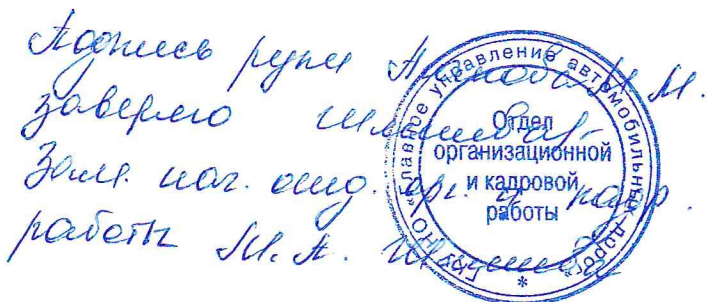 Подпись руки М.
заверяю
Зам. нач. отд. орг. и кадр.
работы М.А.
ГКУ НО «Главное управление автомобильных дорог»
*
Отдел
организационной
и кадровой
работы